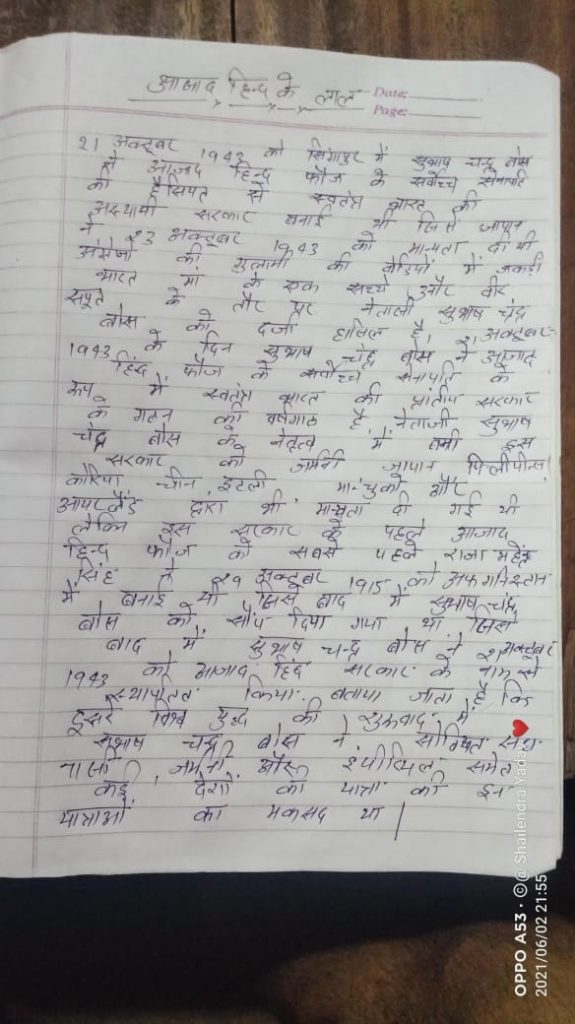 आजाद हिन्द के लाल
Date:
Page:
21 अक्टूबर 1943 को सिंगापुर में सुभाष चन्द्र बोस
ने आजाद हिन्द फौज के सर्वोच्च सेनापति
की हैसियत से स्वतंत्र भारत की
अस्थायी सरकार बनाई थी जिसे जापान
ने 23 अक्टूबर 1943 को मान्यता दी थी
अंग्रेजो की गुलामी की बेडियों में जकडी
भारत मां के एक सच्चे और वीर
सपूत के तौर पर नेताजी सुभाष चंद्र
बोस को दर्जा हासिल है, 21 अक्टूबर
1943 के दिन सुभाष चंद्र बोस ने आजाद
हिंद फौज के सर्वोच्च सेनापति के
रूप में स्वतंत्र भारत की प्रांतीय सरकार
के गठन की वर्षगाठ है नेताजी सुभाष
चंद्र बोस के नेतृत्व में बनी इस
सरकार को जर्मनी जापान फिलीपीन्स
कोरिया चीन, इटली मान्चुको और
आयरलैंड द्वारा भी मान्यता दी गई थी
लेकिन इस सरकार के पहले आजाद
हिन्द फौज को सबसे पहले राजा महेन्द्र
सिंह ने 29 अक्टूबर 1915 को अफगनिस्तान
में बनाई थी जिसे बाद में सुभाष चंद्र
बोस को सौंप दिया गया था जिसे
बाद में सुभाष चन्द्र बोस ने 21 अक्टूबर
1943 को आजाद हिंद सरकार के नाम से
स्थापित किया. बताया जाता है कि
दूसरे विश्व युद्ध की शुरुवाद में
सुभाष चन्द्र बोस ने सोवियत संघ
नाजी जर्मनी और समेत
कई देशों की यात्रा की इन
यात्राओं का मकसद था
OPPO A53 · © @ Shailendra Yadav
2021/06/02 21:55